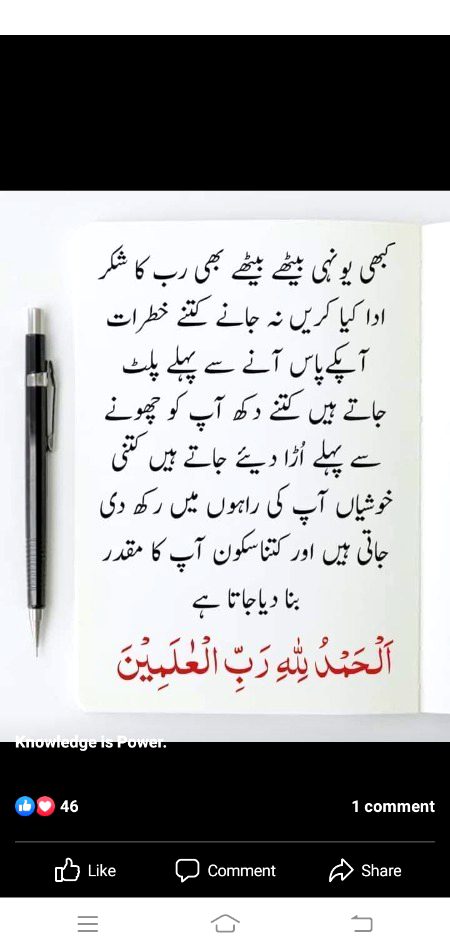 کبھی یونہی بیٹھے بیٹھے بھی رب کا شکر
ادا کیا کریں نہ جانے کتنے خطرات
آپکے پاس آنے سے پہلے پلٹ
جاتے ہیں کتنے دکھ آپ کو چھونے
سے پہلے اُڑا دیئے جاتے ہیں کتنی
خوشیاں آپ کی راہوں میں رکھ دی
جاتی ہیں اور کتنا سکون آپ کا مقدر
بنا دیا جاتا ہے
اَلْحَمْدُ لِلّٰهِ رَبِّ الْعٰلَمِیْنَ
Knowledge is Power.
46
1 comment
Like
Comment
Share